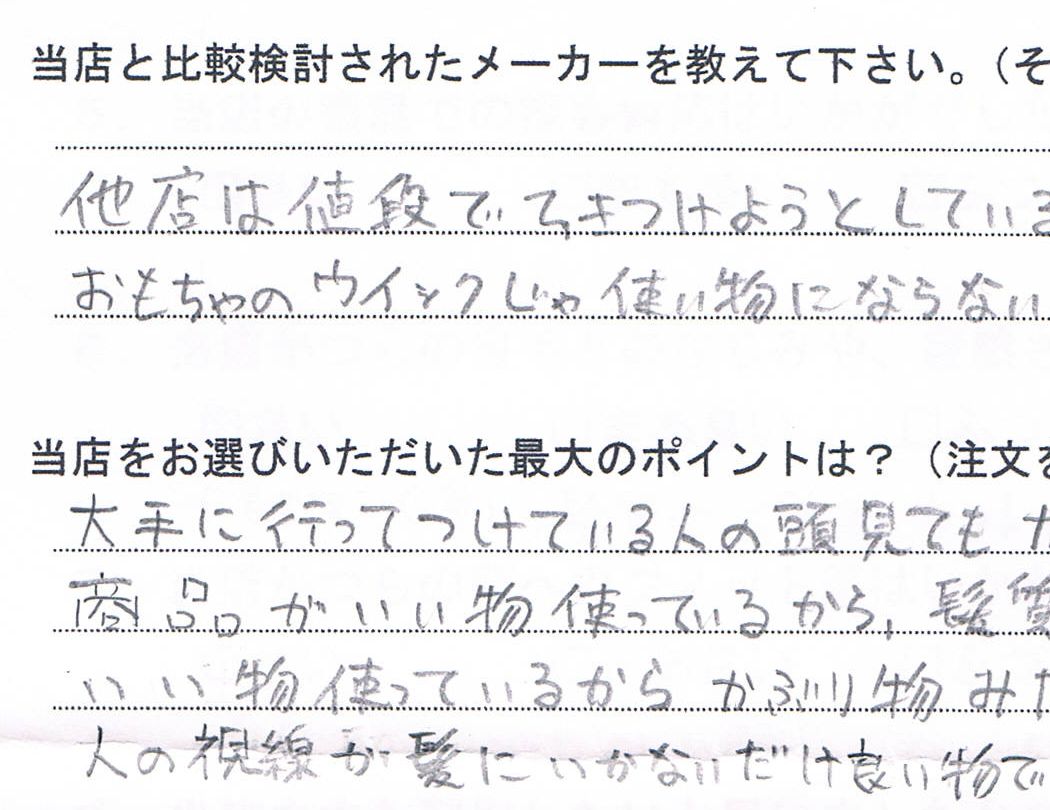 当店と比較検討されたメーカーを教えて下さい。（そ
他店は値段でてきつけようとしている
おもちゃのウイックじゃ使い物にならない
当店をお選びいただいた最大のポイントは？（注文を
大手に行ってつけている人の頭見てもた
商品がいい物使っているから,髪質
いい物使っているからかぶり物みた
人の視線が髪にいかないだけ良い物で